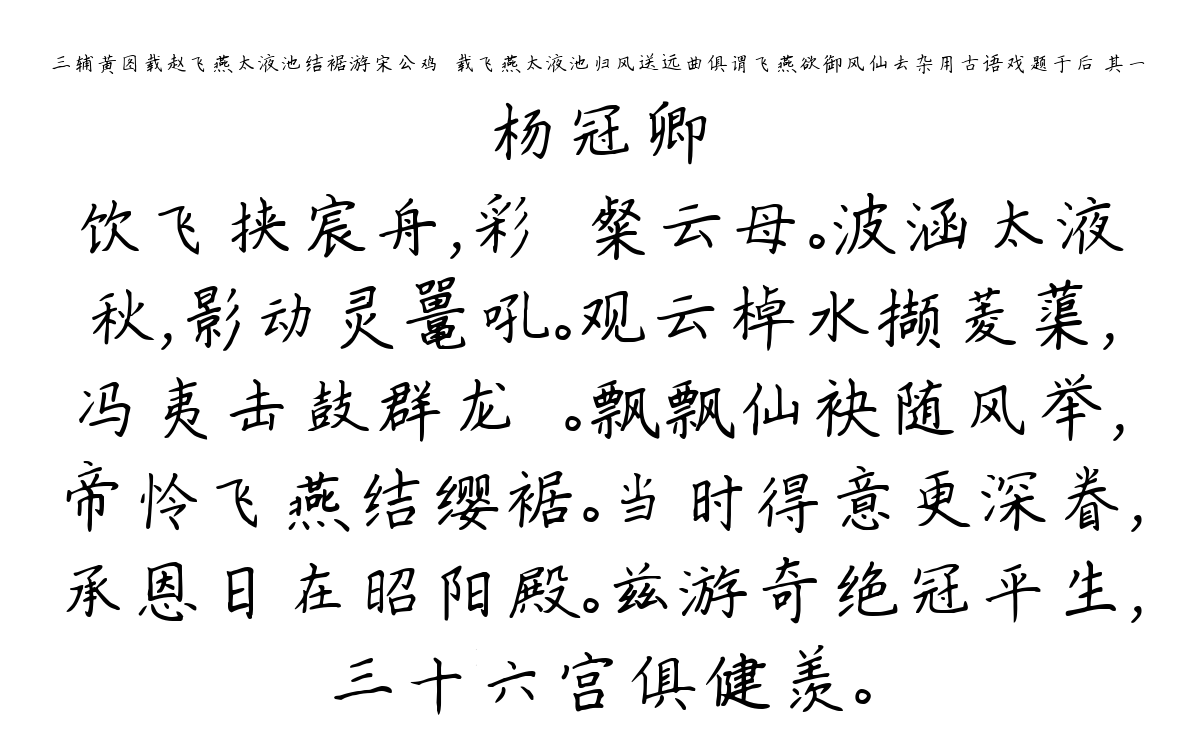 三辅黄图载赵飞燕太液池结裾游宋公鸡 载飞燕太液池归风送远曲俱谓飞燕欲御风仙去杂用古语戏题于后 其一
杨冠卿
饮飞挟宸舟,彩 粲云母。波涵太液
秋,影动灵鼍吼。观云棹水撷菱蕖,
冯夷击鼓群龙 。飘飘仙袂随风举,
帝怜飞燕结缨裾。当时得意更深眷,
承恩日在昭阳殿。兹游奇绝冠平生,
三十六宫俱健羡。